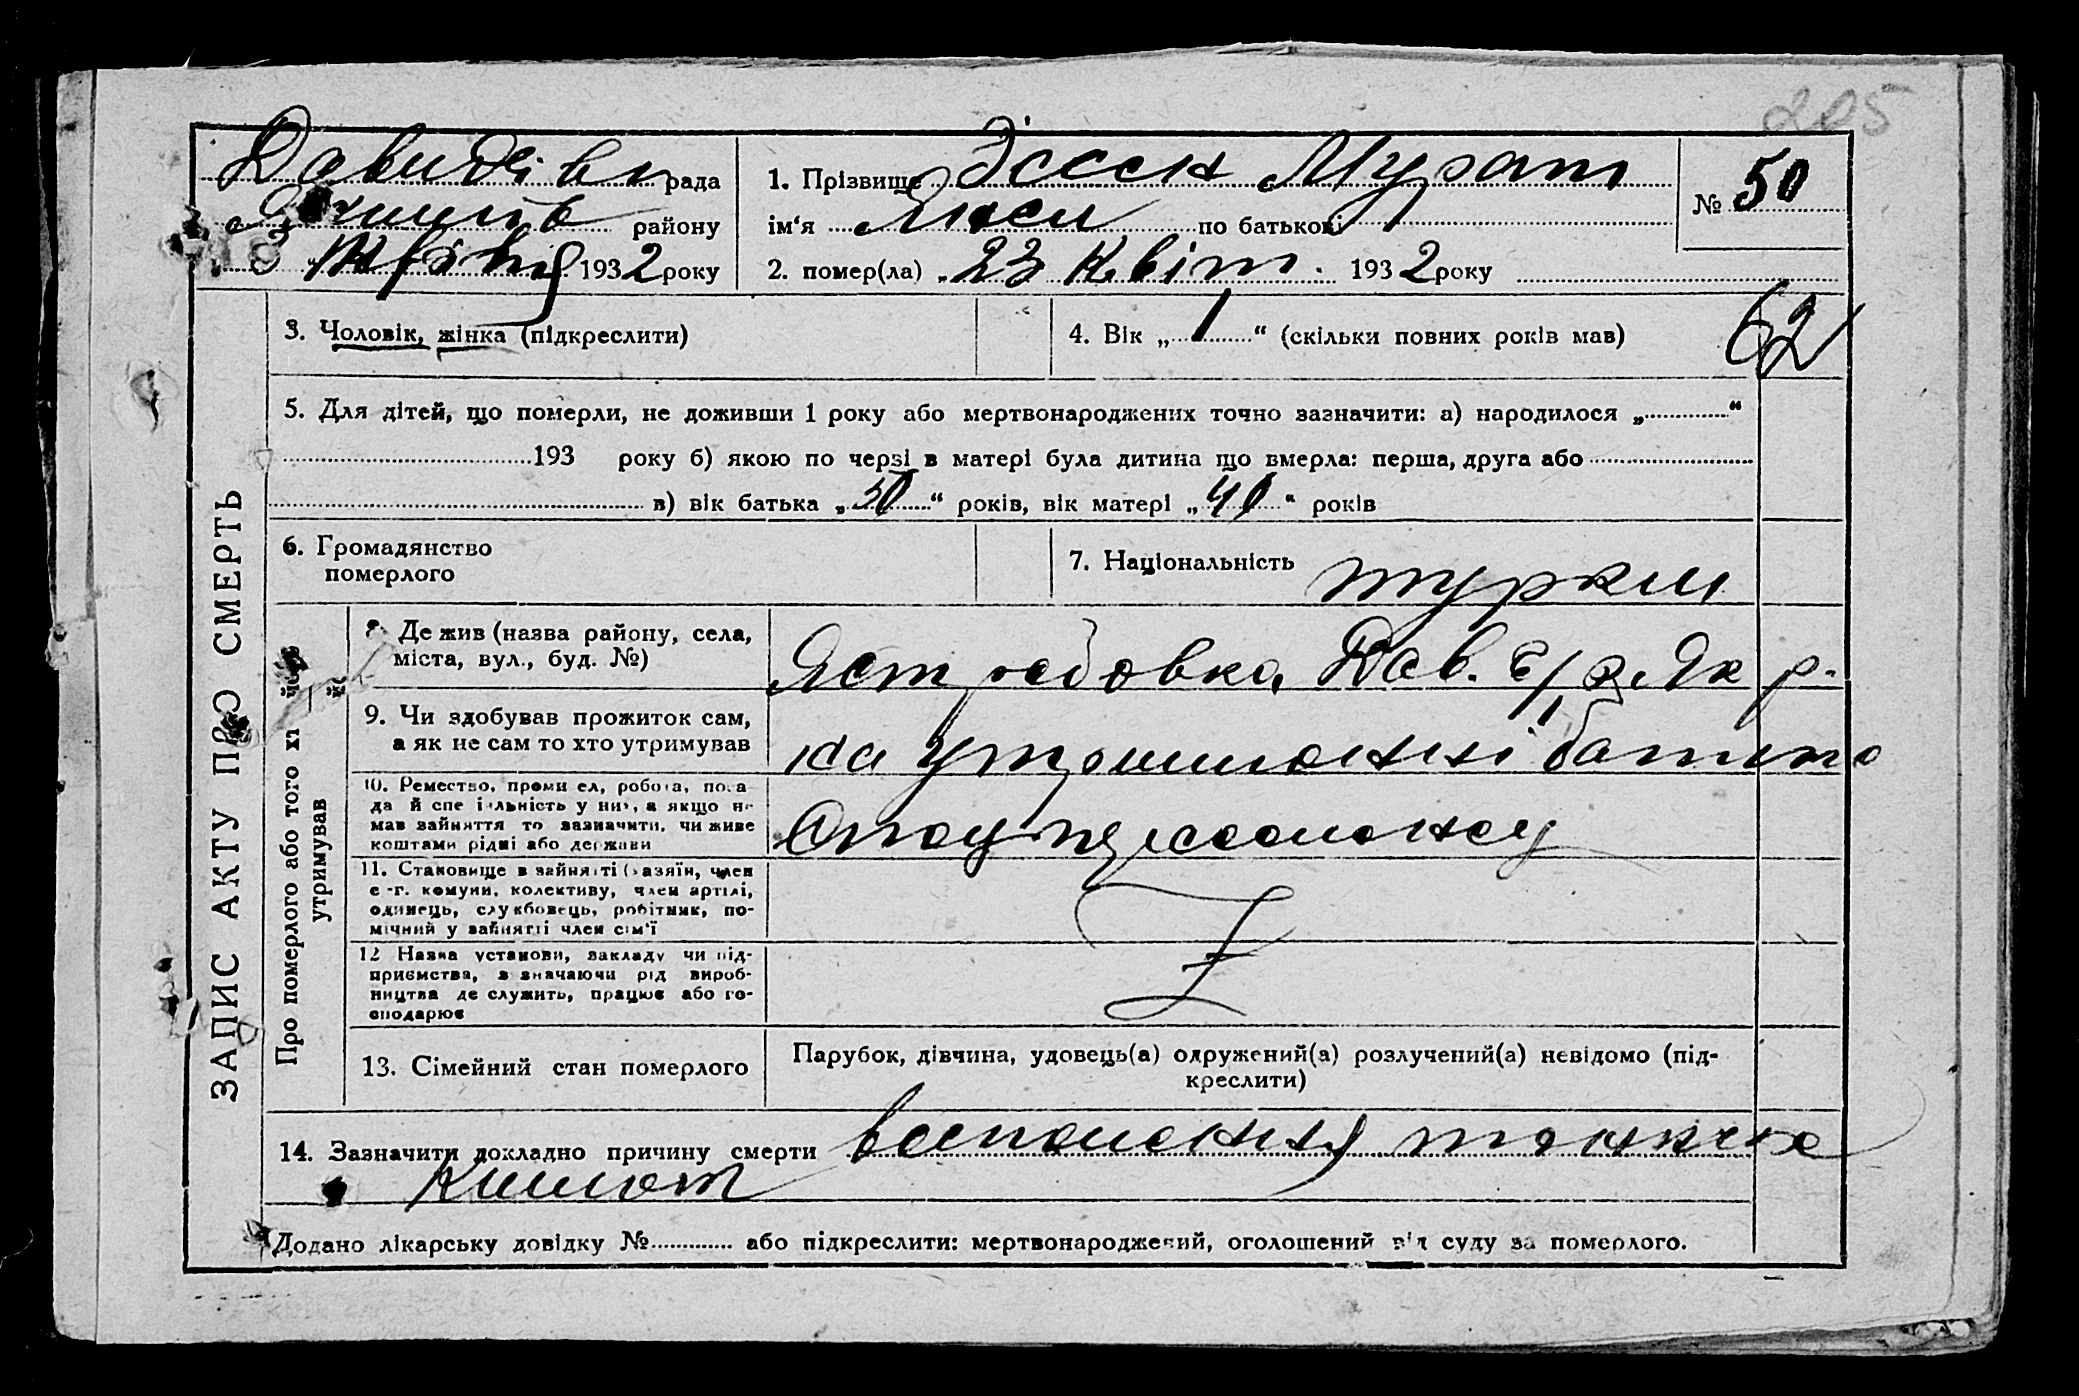 205
Давидівс рада
району
3 Квітня 1932 року
1. Прізвище Мурат
ім'я по батькові
2. помер(ла) „23 Квіт. 1932 року
№ 50
3. Чоловік, жінка (підкреслити)
4. Вік „1“ (скільки повних років мав)
62
5. Для дітей, що померли, не доживши 1 року або мертвонароджених точно зазначити: а) народилося „ “
193 року б) якою по черзі в матері була дитина що вмерла: перша, друга або
в) вік батька „50“ років, вік матері „40“ років
6. Громадянство
померлого
7. Національність турки
ЗАПИС АКТУ ПРО СМЕРТЬ
Про померлого або того хто його
утримував
8. Де жив (назва району, села,
міста, вул., буд. №)
Ястребовка, Дав. с/р Як р.
9. Чи здобував прожиток сам,
а як не сам то хто утримував
на утриманні батька
10. Ремество, промисел, робота, поса-
да й спеціяльність у них, а якщо не
мав зайняття то зазначити, чи живе
коштами рідні або держави
11. Становище в зайнятті (хазяїн, член
с.-г. комуни, колективу, член артілі,
одинець, службовець, робітник, по-
мічний у зайнятті член сім'ї
12 Назва установи, закладу чи під-
приємства, зазначаючи рід вироб-
ництва де служить, працює або го-
сподарює
13. Сімейний стан померлого
Парубок, дівчина, удовець(а) одружений(а) розлучений(а) невідомо (під-
креслити)
14. Зазначити докладно причину смерти воспаления тонких
Кишот
Додано лікарську довідку № або підкреслити: мертвонароджений, оголошений від суду за померлого.